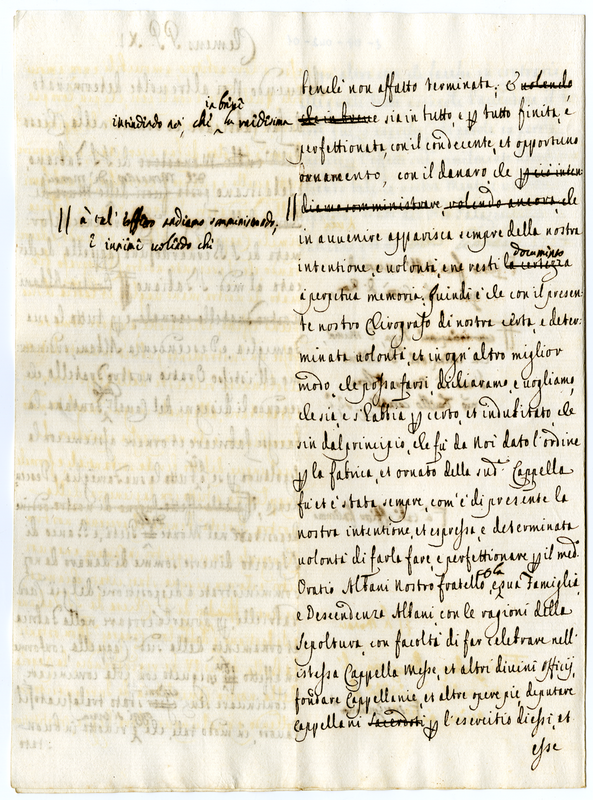 benche non affatto terminata; & volendo
che in breve sia in tutto, e per tutto finita, e
intendendo noi, che in brevе la medesima
perfettionata, con il condecente, et opportuno
ornamento, con il danaro che per ciò inten-
diamo somministrare, volendo ancora che
// à tal' effetto andiamo somministrando,
e insieme volendo che
in avvenire apparisca sempre della nostra
intentione, e volontà, e ne resti la certezza
documento
à perpetua memoria. Quindi è che con il presen-
te nostro Chirografo di nostra certa, e deter-
minata volontà, et in ogn' altro miglior
modo, che possa farsi dichiaramo, e vogliamo,
che sia, e s'habbia per certo, et indubitato che
sin dal principio, che fù da noi dato l'ordine
per la fabrica, et ornato della sud.a Cappella
fù et è stata sempre, com' è di presente la
nostra intentione, et espressa, e determinata
volontà di farla fare, e perfettionare per il med.o
Oratio Albani nostro fratello, e sua Famiglia,
e Descendenza Albani, con le ragioni della
sepoltura, con facoltà di far celebrare nell'
istessa Cappella Messe, et altri divini officij,
fondare Cappellanie, et altre opere pie deputare
Cappellani sacerdoti per l'esercitio di essi, et
esse